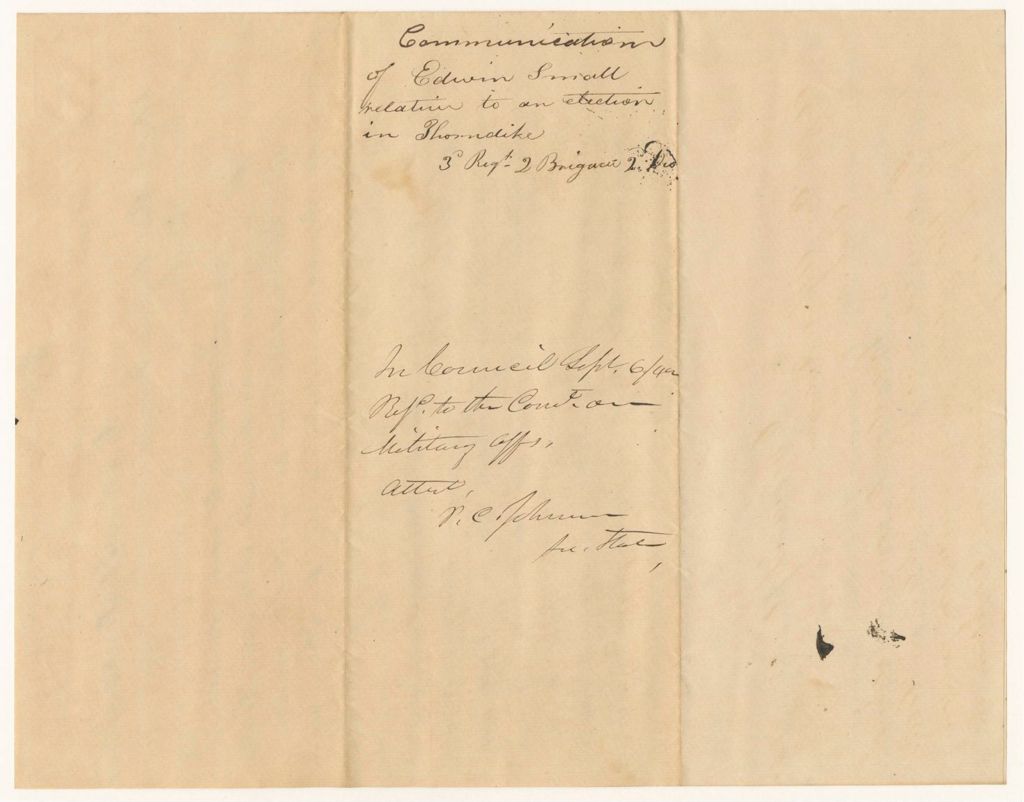 Communication
of Edwin Small
relative to an election
in Thorndike
3d Regt. 2 Brigade 2. Div
In Council Sept. 6/42
Refd. to the Comt. on
Military Affs.
Attest,
P. C. Johnson
Sec. State,